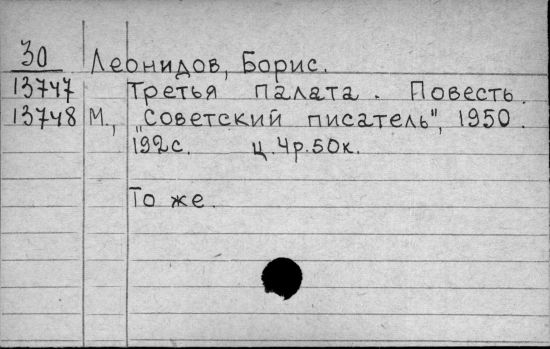 30 Леонидов, Борис.
13747 Третья палата. Повесть.
13748 М., "Советский писатель", 1950.
192с. ц.4р.50к.
То же.